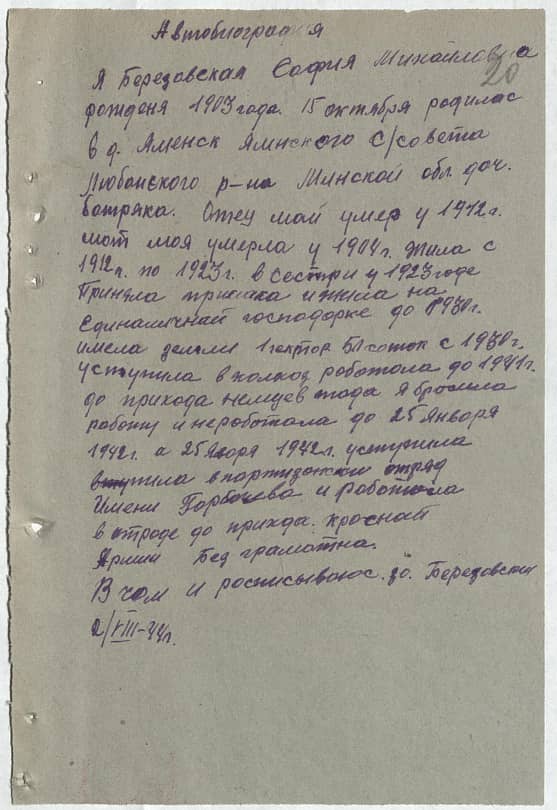 Автобиография
20
Я Березовская София Михайловна
рожденя 1903 года. 15 октября радилас
в д. Яменск Яминского с/совета
Любанского р-на Минской обл. доч.
батряка. Отец мой умер у 1912 г.
мат моя умерла у 1904 г. Жила с
1912 г. по 1923 г. в сестри у 1923 годе
Приняла примака и жила на
единаличнай господорке до 1930 г.
имела земли 1 гектор соток с 1930 г.
уступила в колхоз роботала до 1941 г.
до прихода немцев тада я бросила
работу и не роботала до 25 января
1942 г. а 25 яворя 1942 г. уступила
вступила в партизанский отряд
Имени Горбочева и работала
в отроде до прихда. краснай
Армии Без грамотна.
В чом и росписываюс. за. Березовская
2/VIII-44 г.